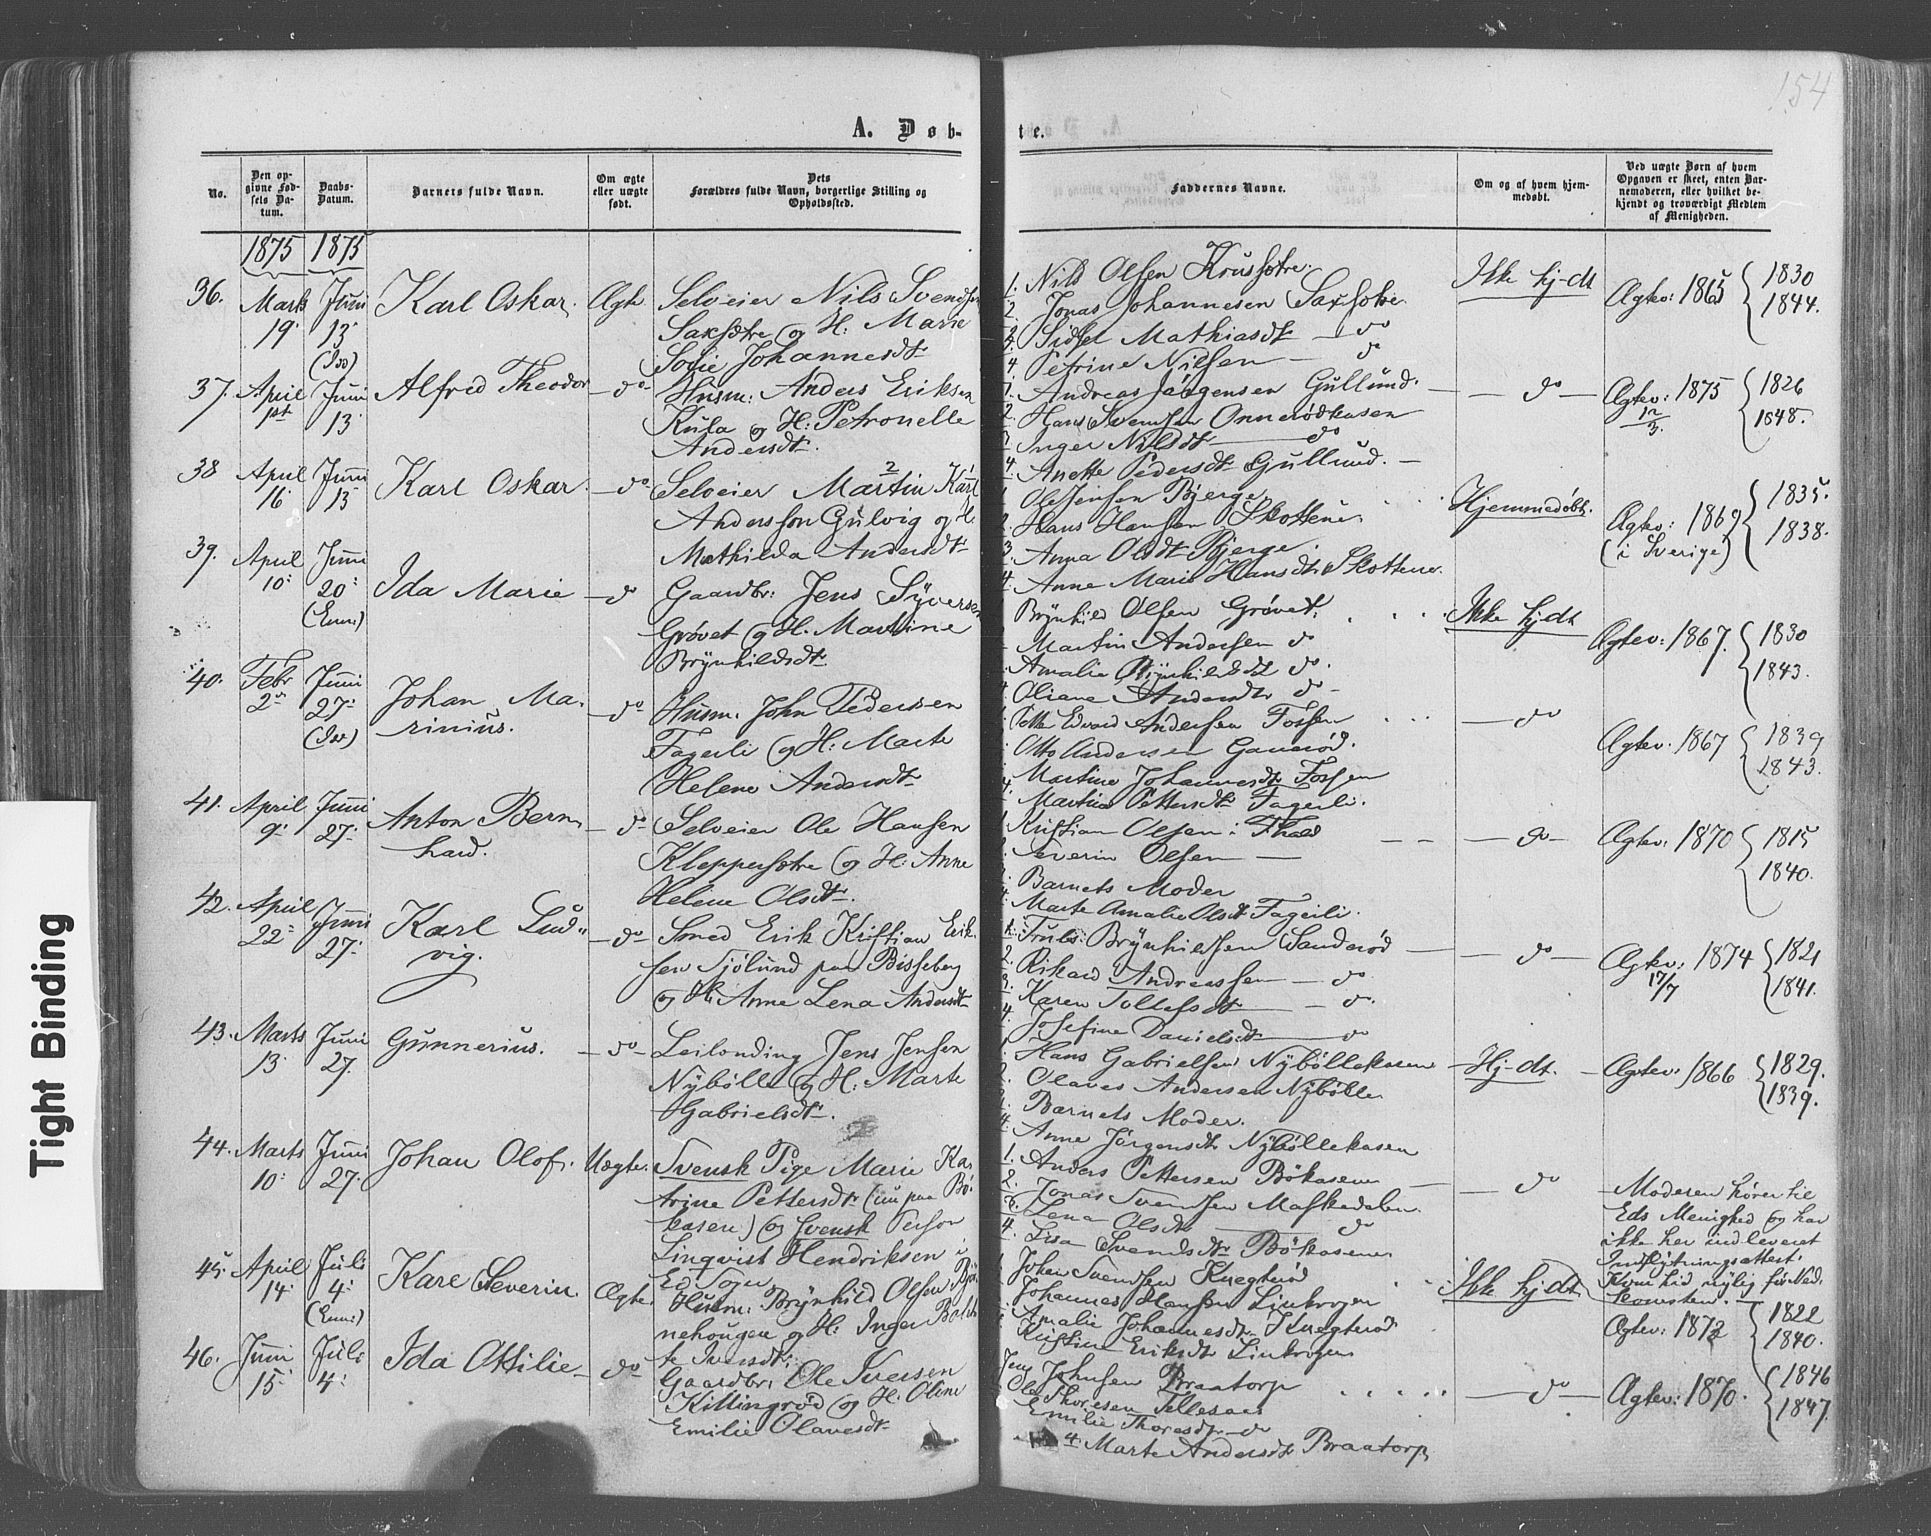 154
A. Døb-
te.
No.
Den op-
givne Fød-
sels Da-
tum.
Daabs-
Datum.
Barnets fulde Navn.
Om ægte
eller uægte
født.
Dets
Forældres fulde Navn, borgerlige Stilling og
Opholdssted.
Faddernes Navne.
Om og af hvem hjem-
medøbt.
Ved uægte Børn af hvem
Opgaven er skeet, enten Bar-
nemoderen, eller hvilket be-
kjendt og troværdigt Medlem
af Menigheden.
1875 1875
36. Marts 19. Juni 13. (Idd) Karl Oskar. Ægte
Selveier Nils Svendsen
Saxsøtre og H: Marie
Sofie Johannesdtr
1. Nils Olsen Krussøtre.
2. Jonas Johannesen Saxsøtre
3. Sidsel Mathiasdtr — do
4. Petrine Nilsen — do
Ikke hj-dt
Ægtev: 1865 { 1830
1844.
37. April 1st Juni 13. Alfred Theodor — do —
Husm: Anders Eriksen
Kula og H: Petronelle
Andersdtr.
1. Andreas Jørgensen Gullund.
2. Hans Svendsen Onnerødkasen
3. Inger Nilsdtr — do
4. Anette Pedersdtr Gullund. —
— do —
Ægtev: 1875 12/3. { 1826
1848.
38 April 16. Juni 13. Karl Oskar. — do —
Selveier Martin Karl
Andersson Gulvig og H.
Mathilda Andersdtr
1. Ole Jensen Bjerge
2. Hans Hansen Skottene
3. Anna Olsdtr Bjerge.
4. Anne Marie Hansdtr Skottene.
Hjemmedøbt.
Ægtev: 1869 (i Sverige) { 1835.
1838.
39. April 10. Juni 20. (Enn:) Ida Marie — do
Gaardbr: Jens Syversen
Grøvet og H. Martine
Brynhildsdtr
Brynhild Olsen Grøvet.
Martin Andersen do
Amalie Brynhildsdtr do.
Oliane Andersdtr do —
Ikke hj-dt
Ægtev: 1867. { 1830
1843.
40. Febr 2en Juni 27. (Idd) Johan Ma-
rinius. — do —
Husm. John Pedersen
Fagerli og H: Marte
Helene Andersdtr
Edvard Andersen Fossen
Otto Andersen Gamerød.
Martine Johannesdtr Fossen
4. Martina Pettersdtr Fagerli.
— do
Ægtev: 1867 { 1839
1843.
41. April 9. Juni 27. Anton Bern-
hard. — do —
Selveier Ole Hansen
Kleppersøtre og H: Anne
Helene Olsdtr.
1. Kristian Olsen
Severin Olsen —
Barnets Moder
Marte Amalie Olsdtr Fagerli.
— do —
Ægtev: 1870 { 1815
1840.
42. April 22. Juni 27. Karl Lud-
vig. — do —
Smed Erik Kristian Erik-
sen Sjölund paa Bisseberg
og H: Anne Lena Andersdtr
1. Truls Brynhildsen Sanderød —
2. Rikard Andreassen — do
3. Karen Tollefsdtr — do.
4. Josefine Danielsdtr — do
— do —
Ægtev: 1874 17/7 { 1821
1841.
43. Marts 13. Juni 27. Gunnerius. — do —
Leilending Jens Jensen
Nybølle og H: Marte
Gabrielsdtr.
Hans Gabrielsen Nybøllekasen
Olaves Andersen Nybølle
Barnets Moder.
Anne Jørgensdtr Nybøllekasen
— Hj-dt. —
Ægtev: 1866 { 1829.
1839.
44. Marts 10. Juni 27. Johan Olof. Uægte.
Svensk Pige Marie Ka-
trine Pettersdtr (nu paa Bø-
kasen) og svensk Person
Linqvist Hendriksen i
Ed Sogn
1. Anders Pettersen Bökasene
2. Jonas Svendsen Maskedalen.
3. Lena Olsdtr — do
4. Lisa Svendsdtr Bökasene
— do
— Moderen hører til
Eds Menighed og har
ikke her indleveret
Indflytningsattest.
Kom hid nylig før Ned-
komsten. —
45. April 14. Juli 4. (Enn:) Karl Severin. Ægte.
Husm: Brynhild Olsen Bjør-
nehougen og H: Inger Bolet-
te Iversdtr.
Johan Svendsen Knegterød
Johannes Hansen Linkrogen
Amalie Johannesdtr Knegterød
Kristine Eriksdtr Linkrogen
Ikke hjdt
Ægtev: 1872 { 1822
1840.
46. Juni 15. Juli 4. Ida Ottilie — do —
Gaardbr: Ole Iversen
Killingrød og H: Oline
Emilie Olavesdtr
Jens Johnsen Braatorp
Ole Thoresen
Emilie Thoresdtr — do
4. Marte Andersdtr Braatorp
— do —
Ægtev: 1870. { 1846
1847.
Tight Binding